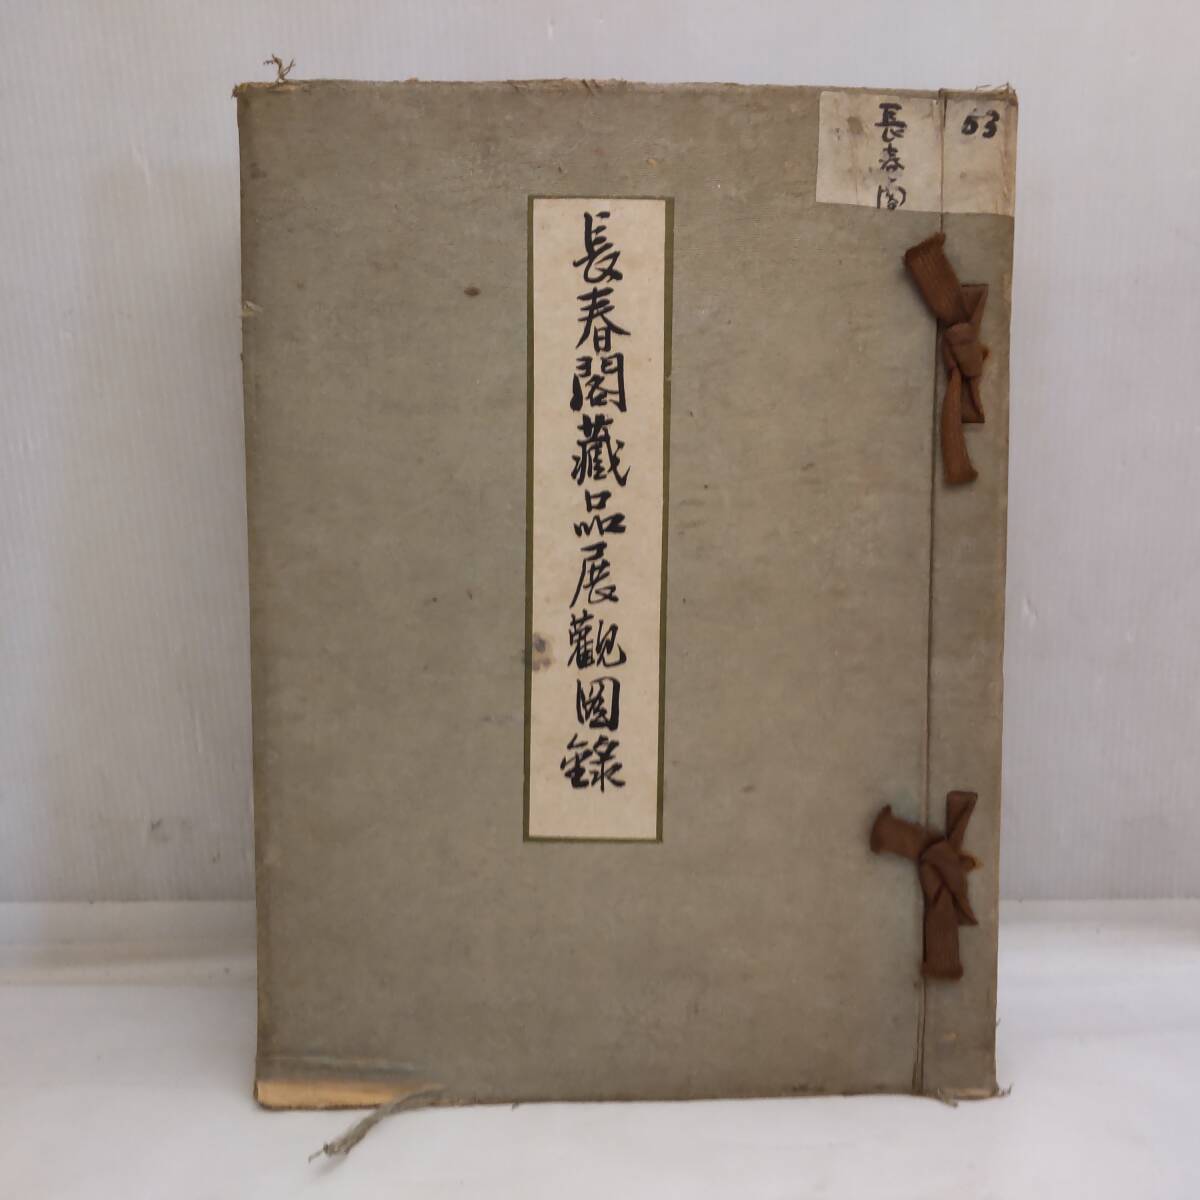 長春閣藏品展觀図錄
長春閣
53